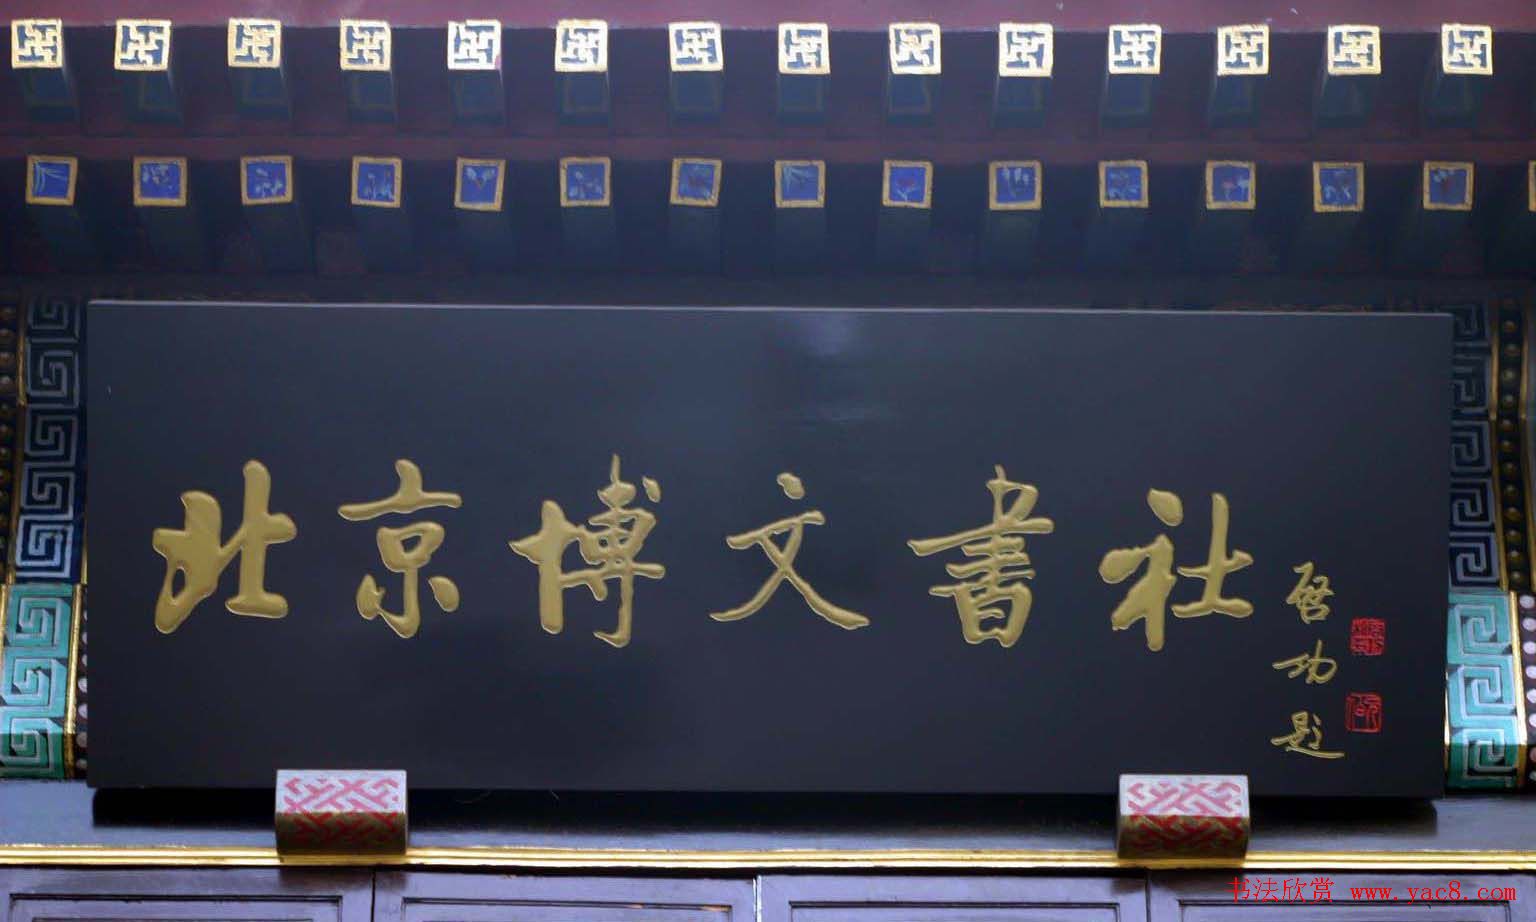 北京博文書社
启功题
书法欣赏 www.yac8.com